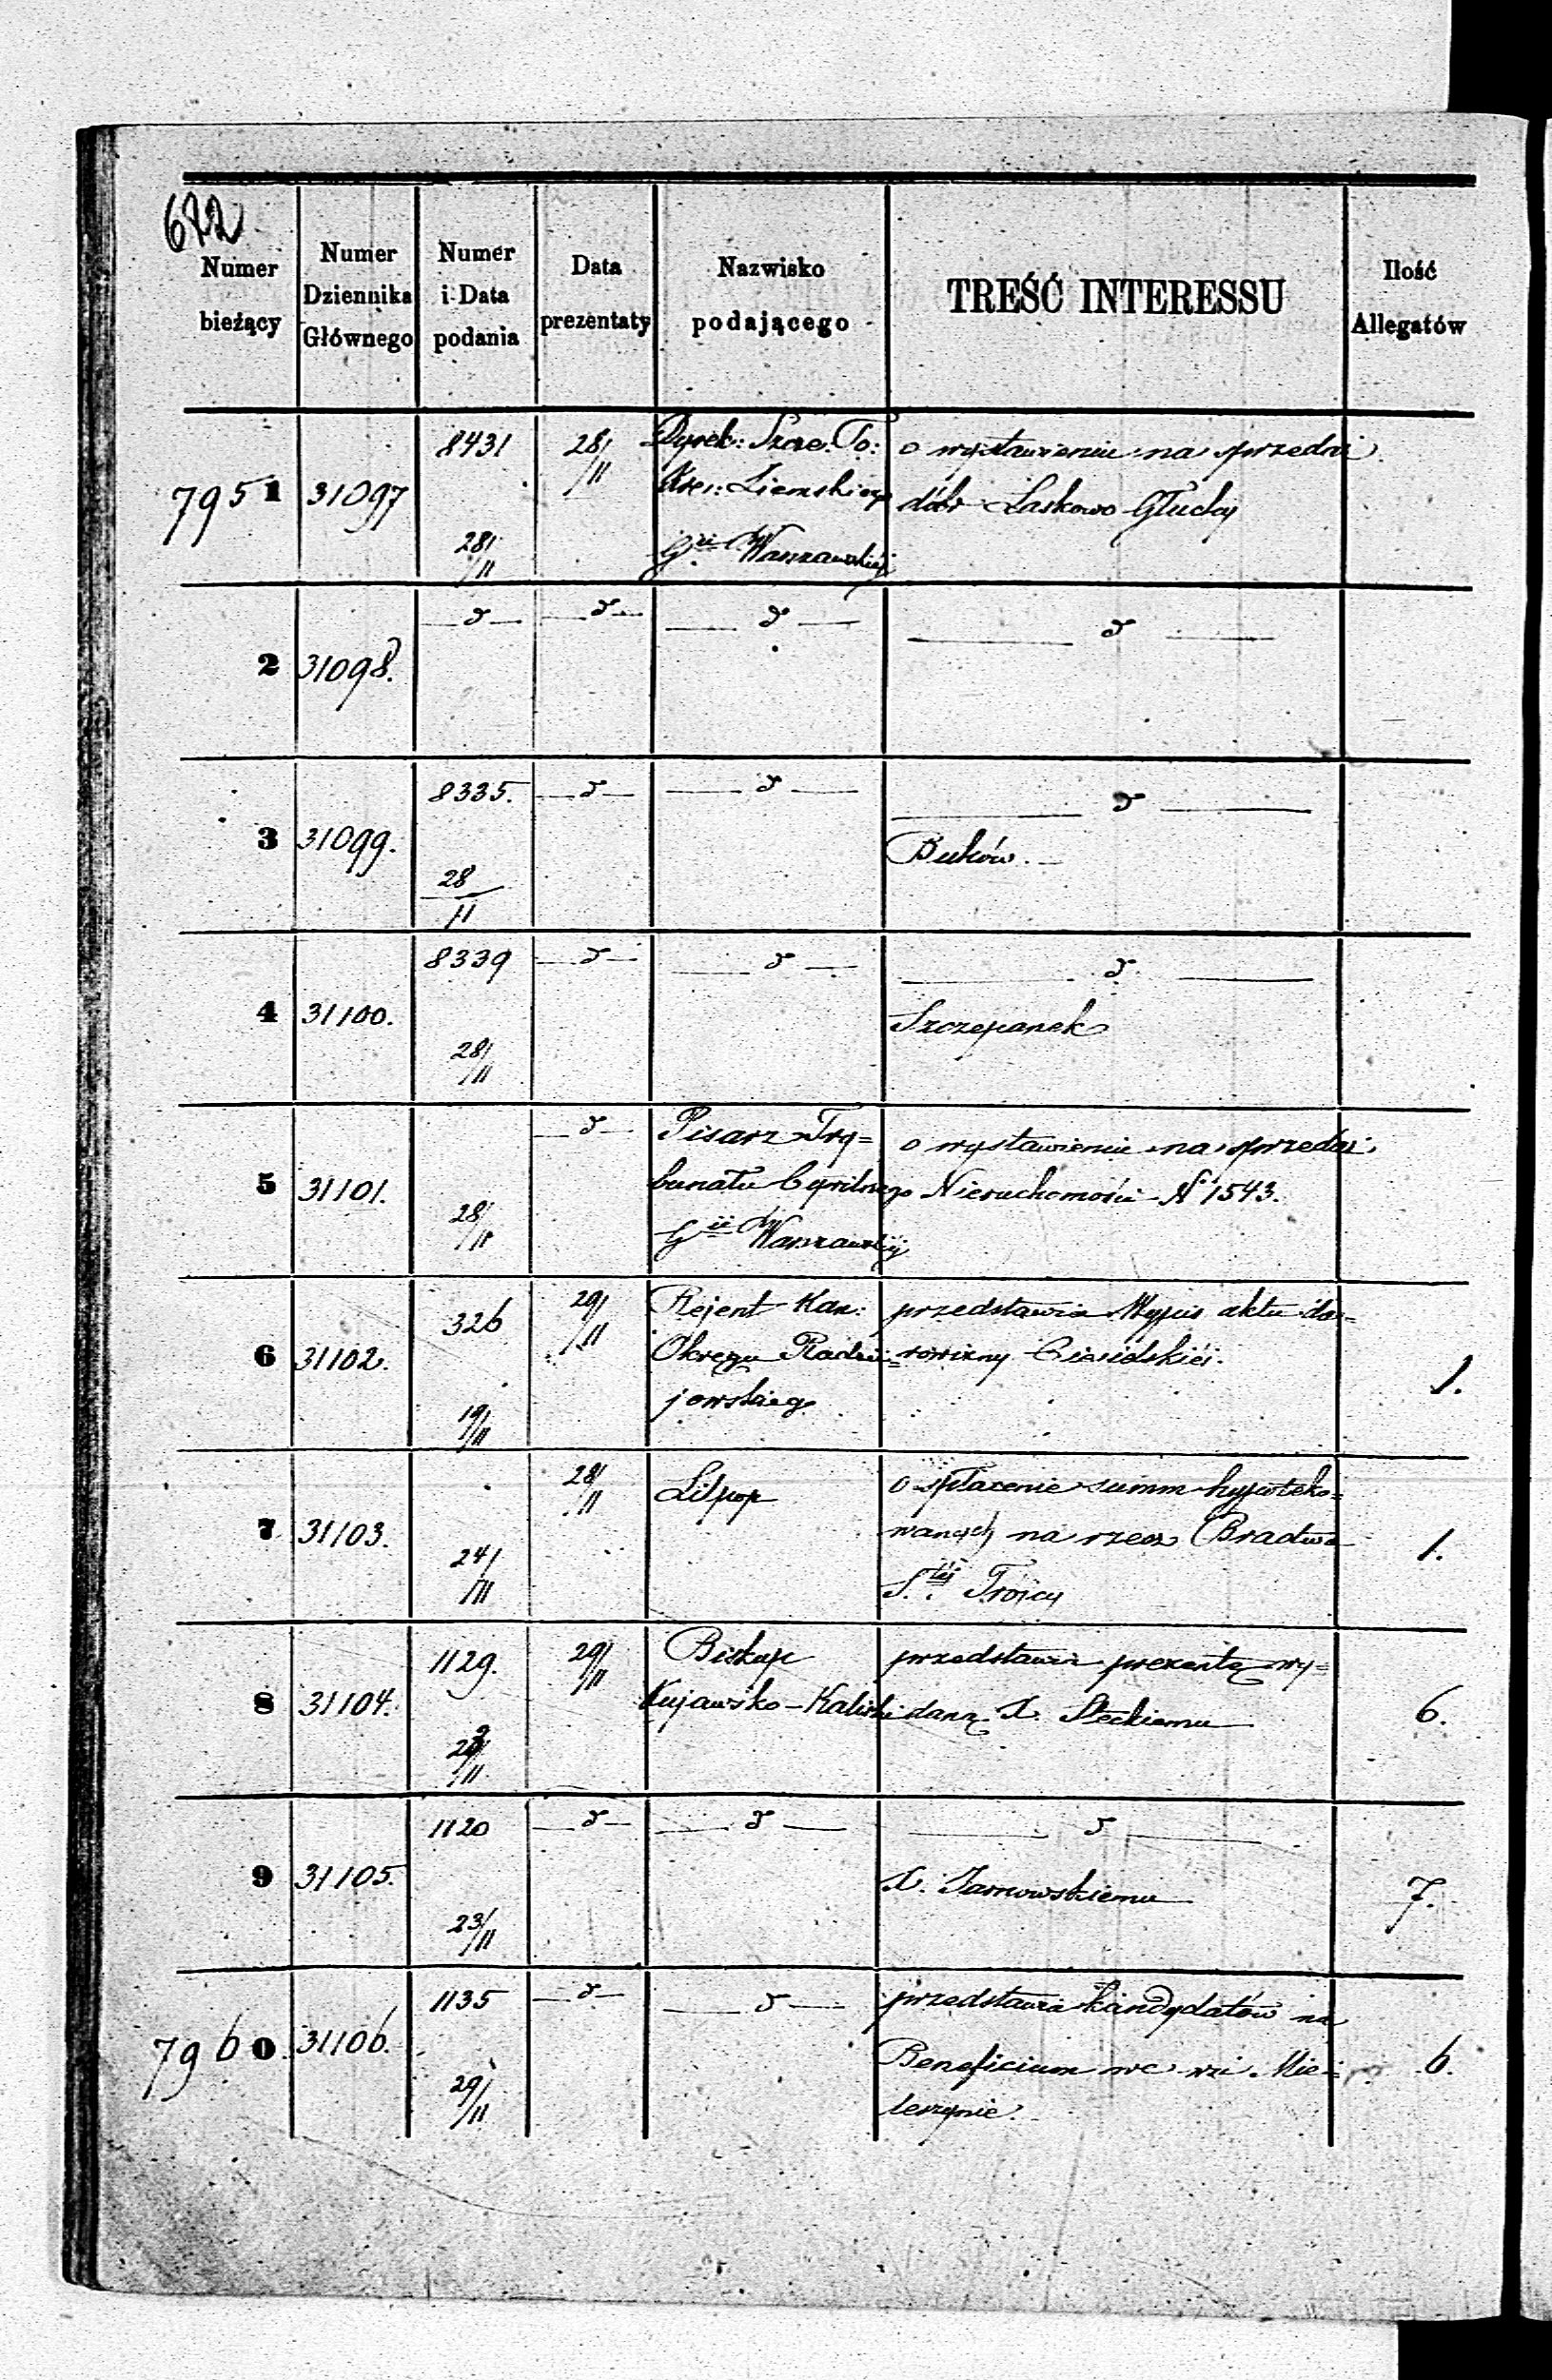 622
Numer bieżący
Numer Dziennika Głównego
Numer i Data podania
Data prezentaty
Nazwisko podającego
TREŚĆ INTERESSU
Ilość Allegatów
7951 31097 8431 28/11 28/11
Dyrek: Szcze: To:
Kre: Ziemskiego
Gii Warszawskiej
o wystawienie na sprzedaż
dóbr Laskowo Głuchy
2 31098. —d— —d— —d— —d—
3 31099. 8335. 28/11 —d— —d— —d—
Buków.
4 31100. 8339 28/11 —d— —d— —d—
Szczepanek
5 31101. 28/11 —d—
Pisarz Try=
bunału Cywilnego
Gii Warszawskiej
o wystawienie na sprzedaż
Nieruchomości N 1543.
6 31102. 326 19/11 29/11
Rejent Kan:
Okręgu Radzie=
jowskiego
przedstawia Wypis aktu da=
rowizny
1.
7 31103. 24/III 28/11
Lilpop
o spłacenie summ hypoteko=
wanych na rzecz Bractwa
S. tej Troicy
1.
8 31104. 1129. 29/11
Biskup
Kujawsko-Kaliski
przedstawia prezentę wy=
daną X. Steckiemu
6.
9 31105. 1120 23/11 —d— —d— —d—
X. Tarnowskiemu
7.
7960 31106. 1135 29/11 —d— —d—
przedstawia kandydatów na
Beneficium we wsi Mie=
leszynie.
6.